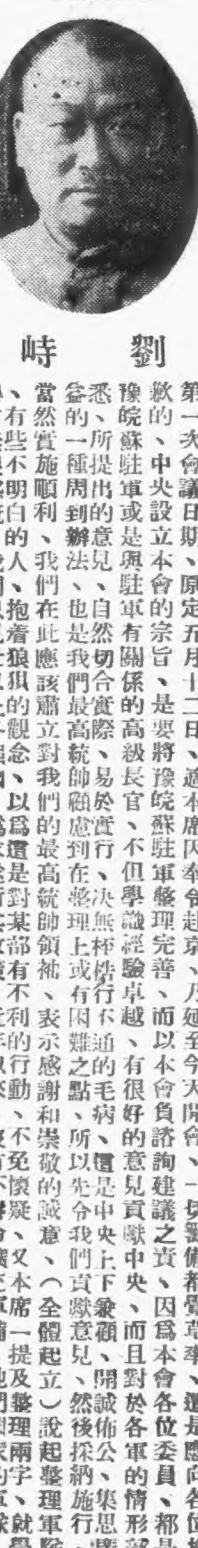 劉峙
第一次會議日期、原定五月十二日、適本席因奉令赴京、乃延至今天開會、一切籌備都覺草率、還是應向各位
歉的、中央設立本會的宗旨、是要將豫皖蘇駐軍整理完善、而以本會負諮詢建議之責、因爲本會各位委員、都是
豫皖蘇駐軍或是與駐軍有關係的高級長官、不但學識經驗卓越、有很好的意見貢獻中央、而且對於各軍的情形
悉、所提出的意見、自然切合實際、易於實行、決無杆格行不通的毛病、還是中央上下兼顧、開誠佈公、集思廣
益的一種周到辦法、也是我們最高統帥顧慮到在整理上或有困難之點、所以先令我們貢獻意見、然後採納施行、
當然實施順利、我們在此應該肅立對我們的最高統帥領袖、表示感謝和崇敬的誠意、（全體起立）說起整理軍隊
、有些不明白的人、抱着狼狽的觀念、以爲這是對某部有不利的行動、不免懷疑、又本席一提及整理兩字、就